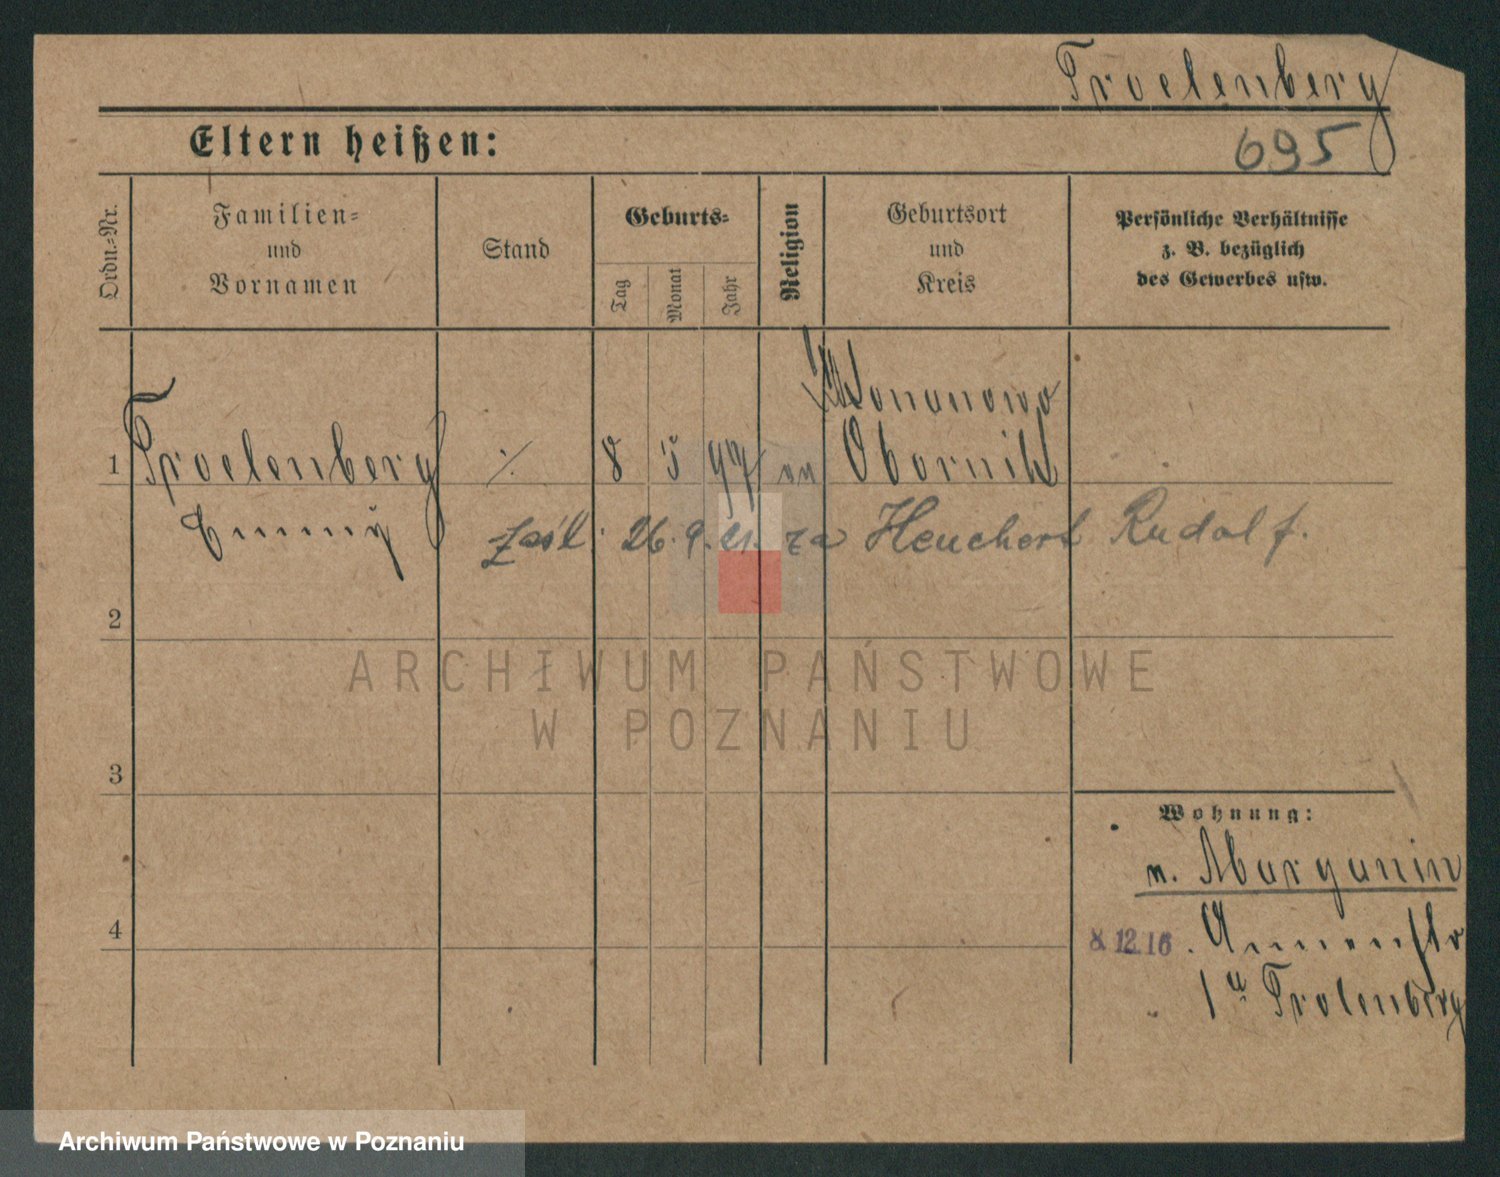 Troelenberg
695
Eltern heißen:
Ordn.-Nr.
Familien-
und
Vornamen
Stand
Geburts-
Tag
Monat
Jahr
Religion
Geburtsort
und
Kreis
Persönliche Verhältnisse
z. B. bezüglich
des Gewerbes usw.
1
Troelenberg
Emmy
8 5 97
Obornik
zaśl. 26.9.21. za Heuchert Rudolf.
2
3
4
ARCHIWUM PAŃSTWOWE
W POZNANIU
Wohnung:
n. Margonin
8.12.16. Annenstr
1 a Trolenberg
Archiwum Państwowe w Poznaniu